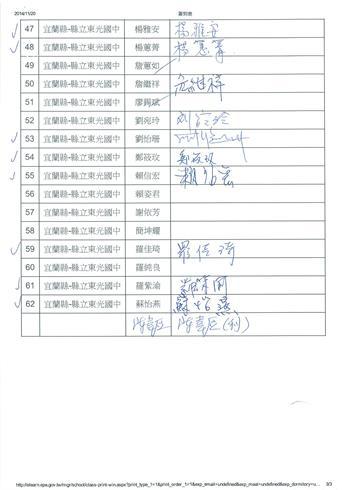 2014/11/20 簽到表
47 宜蘭縣-縣立東光國中 楊雅安 楊雅安
48 宜蘭縣-縣立東光國中 楊蕙菁 楊蕙菁
49 宜蘭縣-縣立東光國中 詹蕙如
50 宜蘭縣-縣立東光國中 詹繼祥 詹繼祥
51 宜蘭縣-縣立東光國中 廖錫斌
52 宜蘭縣-縣立東光國中 劉宛玲 刘宛玲
53 宜蘭縣-縣立東光國中 劉怡珊
54 宜蘭縣-縣立東光國中 鄭筱玫 鄭筱玫
55 宜蘭縣-縣立東光國中 賴信宏 賴信宏
56 宜蘭縣-縣立東光國中 賴姿君
57 宜蘭縣-縣立東光國中 謝依芳
58 宜蘭縣-縣立東光國中 簡坤耀
59 宜蘭縣-縣立東光國中 羅佳琦 羅佳琦
60 宜蘭縣-縣立東光國中 羅純良
61 宜蘭縣-縣立東光國中 羅紫渝
62 宜蘭縣-縣立東光國中 蘇怡燕 蘇怡燕
http://elearn.epa.gov.tw/mgr/school/class-print-win.aspx?print_type_1=1&print_order_1=1&exp_email=undefined&exp_meal=undefined&exp_dormitory=u... 3/3